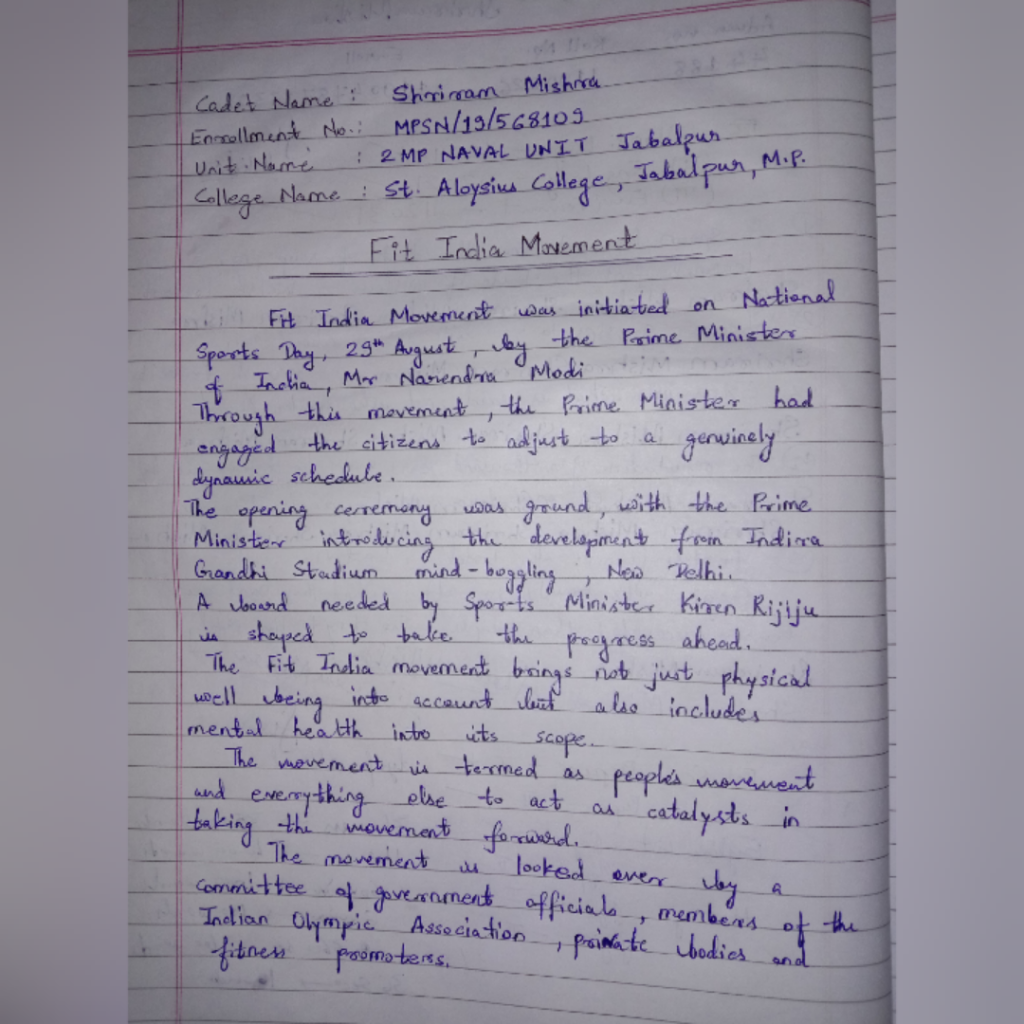 Cadet Name : Shriram Mishra
Enrollment No.: MPSN/19/568109
Unit Name : 2 MP NAVAL UNIT Jabalpur
College Name : St. Aloysius College, Jabalpur, M.P.
Fit India Movement
Fit India Movement was initiated on National
Sports Day, 29th August, by the Prime Minister
of India, Mr Narendra Modi
Through this movement, the Prime Minister had
engaged the citizens to adjust to a genuinely
dynamic schedule.
The opening ceremony was grund, with the Prime
Minister introducing the development from Indira
Gandhi Stadium mind-boggling, New Delhi.
A board needed by Sports Minister Kiren Rijiju
is shaped to take the progress ahead.
The Fit India movement brings not just physical
well being into account but also includes
mental health into its scope.
The movement is termed as people's movement
and everything else to act as catalysts in
taking the movement forward.
The movement is looked over by a
committee of government officials, members of the
Indian Olympic Association, private bodies and
fitness promoters.